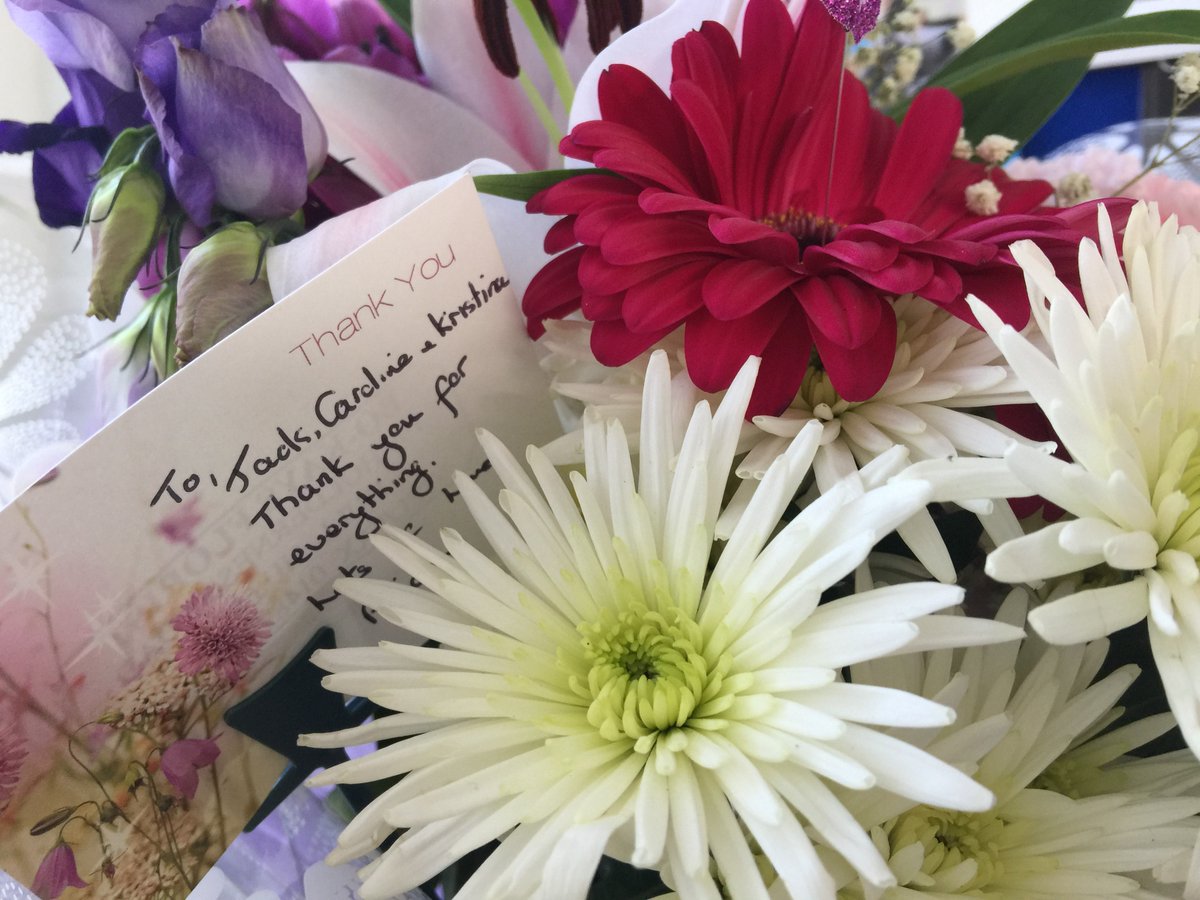 Thank You
To, Jack, Caroline & Kristina
Thank you for
everything.